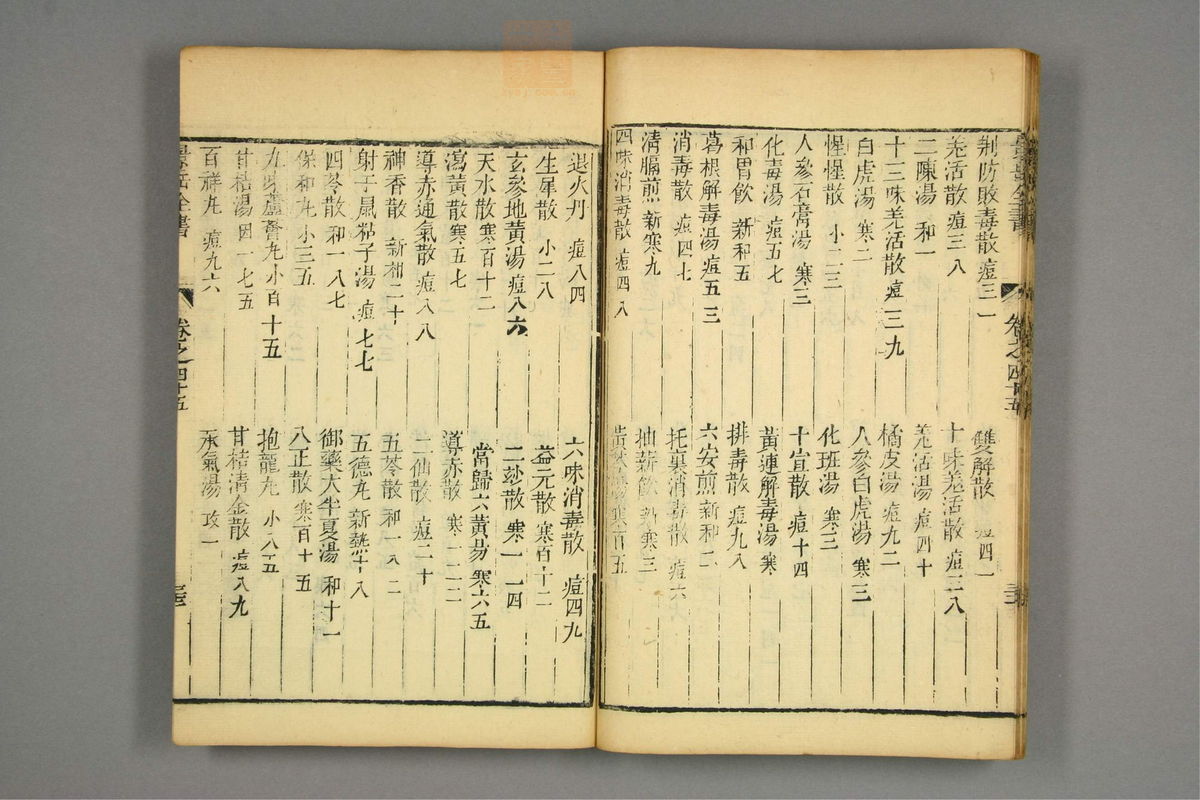 荆防敗毒散 痘三一 雙解散 痘四一
羌活散 痘三八 十味羌活散 痘三八
二陳湯 和一 羌活湯 痘四十
十三味羌活散 痘三九 橘皮湯 痘九二
白虎湯 寒二 人參白虎湯 寒三
惺惺散 小二三 化班湯 寒三
人參石膏湯 寒三 十宣散 痘十四
化毒湯 痘五七 黃連解毒湯 寒
和胃飲 新和五 排毒散 痘九八
葛根解毒湯 痘五三 六安煎 新和二
消毒散 痘四七 托裏消毒散 痘六
清膈煎 新寒九 抽薪飲 新寒三
四味消毒散 痘四八 寒百五
景岳全書 卷之四十五
退火丹 痘八四 六味消毒散 痘四九
生犀散 小二八 益元散 寒百十二
玄參地黃湯 痘八六 二妙散 寒一一四
天水散 寒百十二 當歸六黃湯 寒六五
瀉黃散 寒五七 導赤散 寒一二二
導赤通氣散 痘八八 二仙散 痘二十
神香散 新和二十 五苓散 和一八二
射子鼠粘子湯 痘七七 五德丸 新熱十八
四苓散 和一八七 御藥大半夏湯 和十一
保和丸 小三五 八正散 寒百十五
九味蘆薈丸 小百十五 抱龍丸 小八五
甘桔湯 因一七五 甘桔清金散 痘八九
百祥丸 痘九六 承氣湯 攻一
景岳全書 卷之四十五